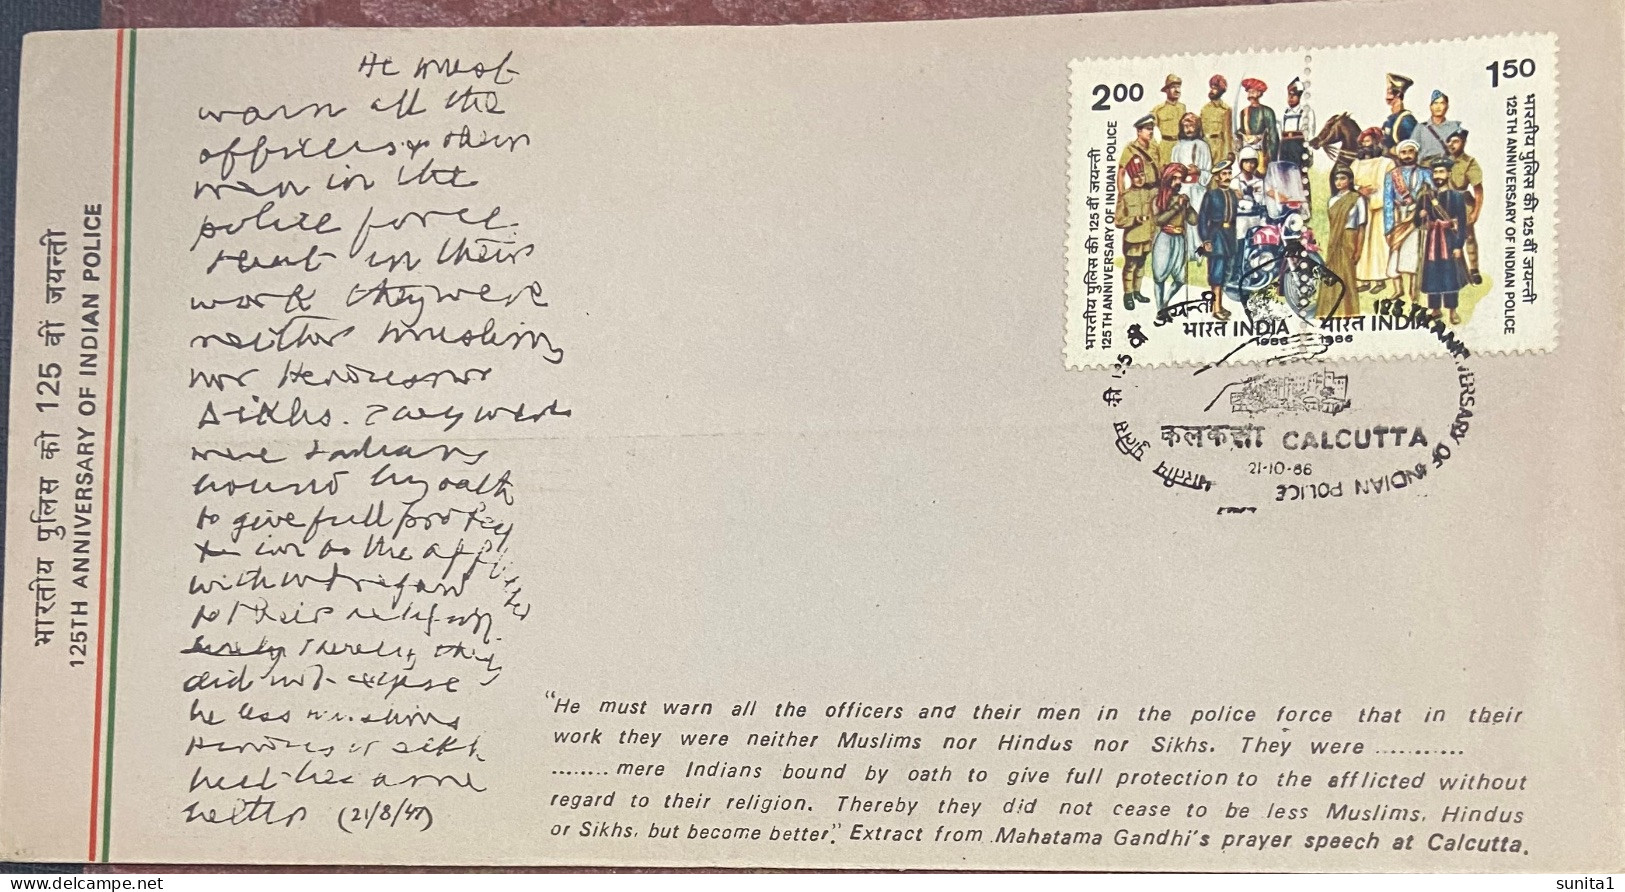 भारतीय पुलिस की 125 वीं जयन्ती
125TH ANNIVERSARY OF INDIAN POLICE
He must
warn all the
officers & their
men in the
police force
that in their
work they were
neither Muslims
nor Hindus nor
Sikhs. They were
mere Indians
bound by oath
to give full protec
tion to the afflicted
without regard
to their religion
Thereby they
did not cease
be less Muslims
Hindus or Sikh
but became
better (21/8/47)
2.00
भारतीय पुलिस की 125 वीं जयन्ती
125TH ANNIVERSARY OF INDIAN POLICE
भारत INDIA
1986
1.50
भारतीय पुलिस की 125 वीं जयन्ती
125TH ANNIVERSARY OF INDIAN POLICE
भारत INDIA
1986
भारतीय पुलिस की 125 वीं जयन्ती
125TH ANNIVERSARY OF INDIAN POLICE
कलकत्ता CALCUTTA
21-10-86
"He must warn all the officers and their men in the police force that in their
work they were neither Muslims nor Hindus nor Sikhs. They were ...........
........mere Indians bound by oath to give full protection to the afflicted without
regard to their religion. Thereby they did not cease to be less Muslims, Hindus
or Sikhs, but become better." Extract from Mahatama Gandhi's prayer speech at Calcutta.
sunita1